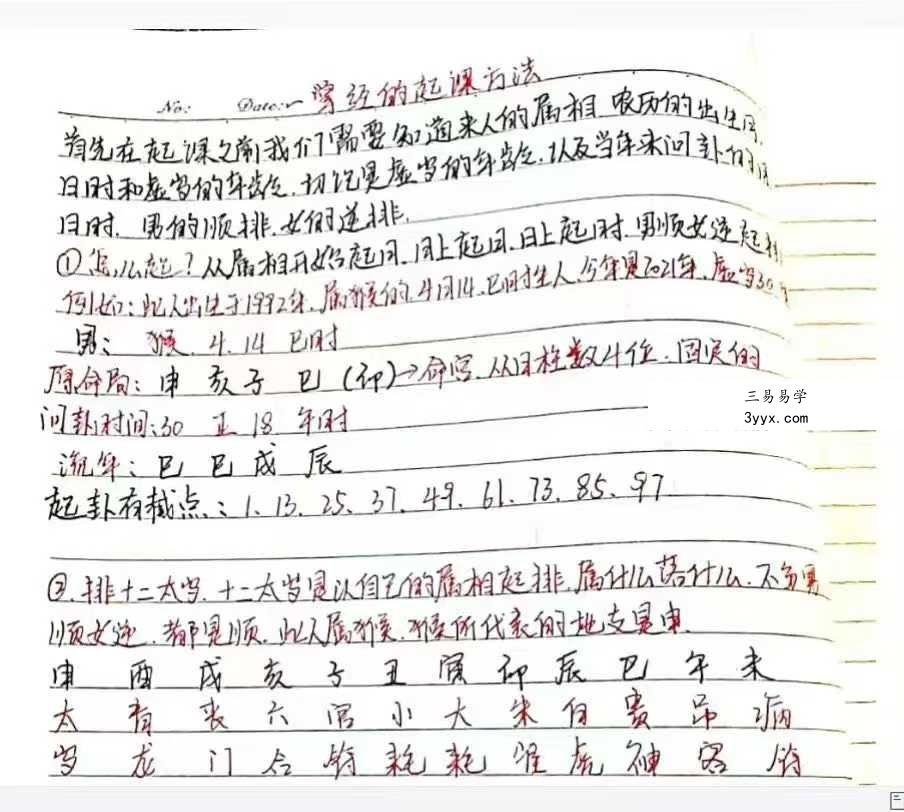 No: Date: 穿经的起课方法
首先在起课之前我们需要知道来人的属相 农历的出生月
日时和虚岁的年龄.切记是虚岁的年龄.以及当年来问卦的月
日时. 男的顺排.女的逆排.
①怎么起?从属相开始起月.月上起日.日上起时.男顺女逆起
例如:此人出生于1992年.属猴的.4月14.巳时生人.今年是2021年.虚岁30.
男: 猴. 4. 14 巳时
原命局: 申 亥 子 巳 (卯)→命宫.从时柱数4位.固定的
三易易学
3yyx.com
问卦时间:30 正 18 午时
流年: 巳 巳 戌 辰
起卦有截点: 1. 13. 25. 37. 49. 61. 73. 85. 97
②.排十二太岁.十二太岁是以自己的属相起排.属什么落什么.不分男
顺女逆.都是顺.此人属猴.猴所代表的地支是申.
申 酉 戌 亥 子 丑 寅 卯 辰 巳 午 未
太 青 丧 六 官 小 大 朱 白 贵 吊 病
岁 龙 门 合 符 耗 耗 雀 虎 神 客 符